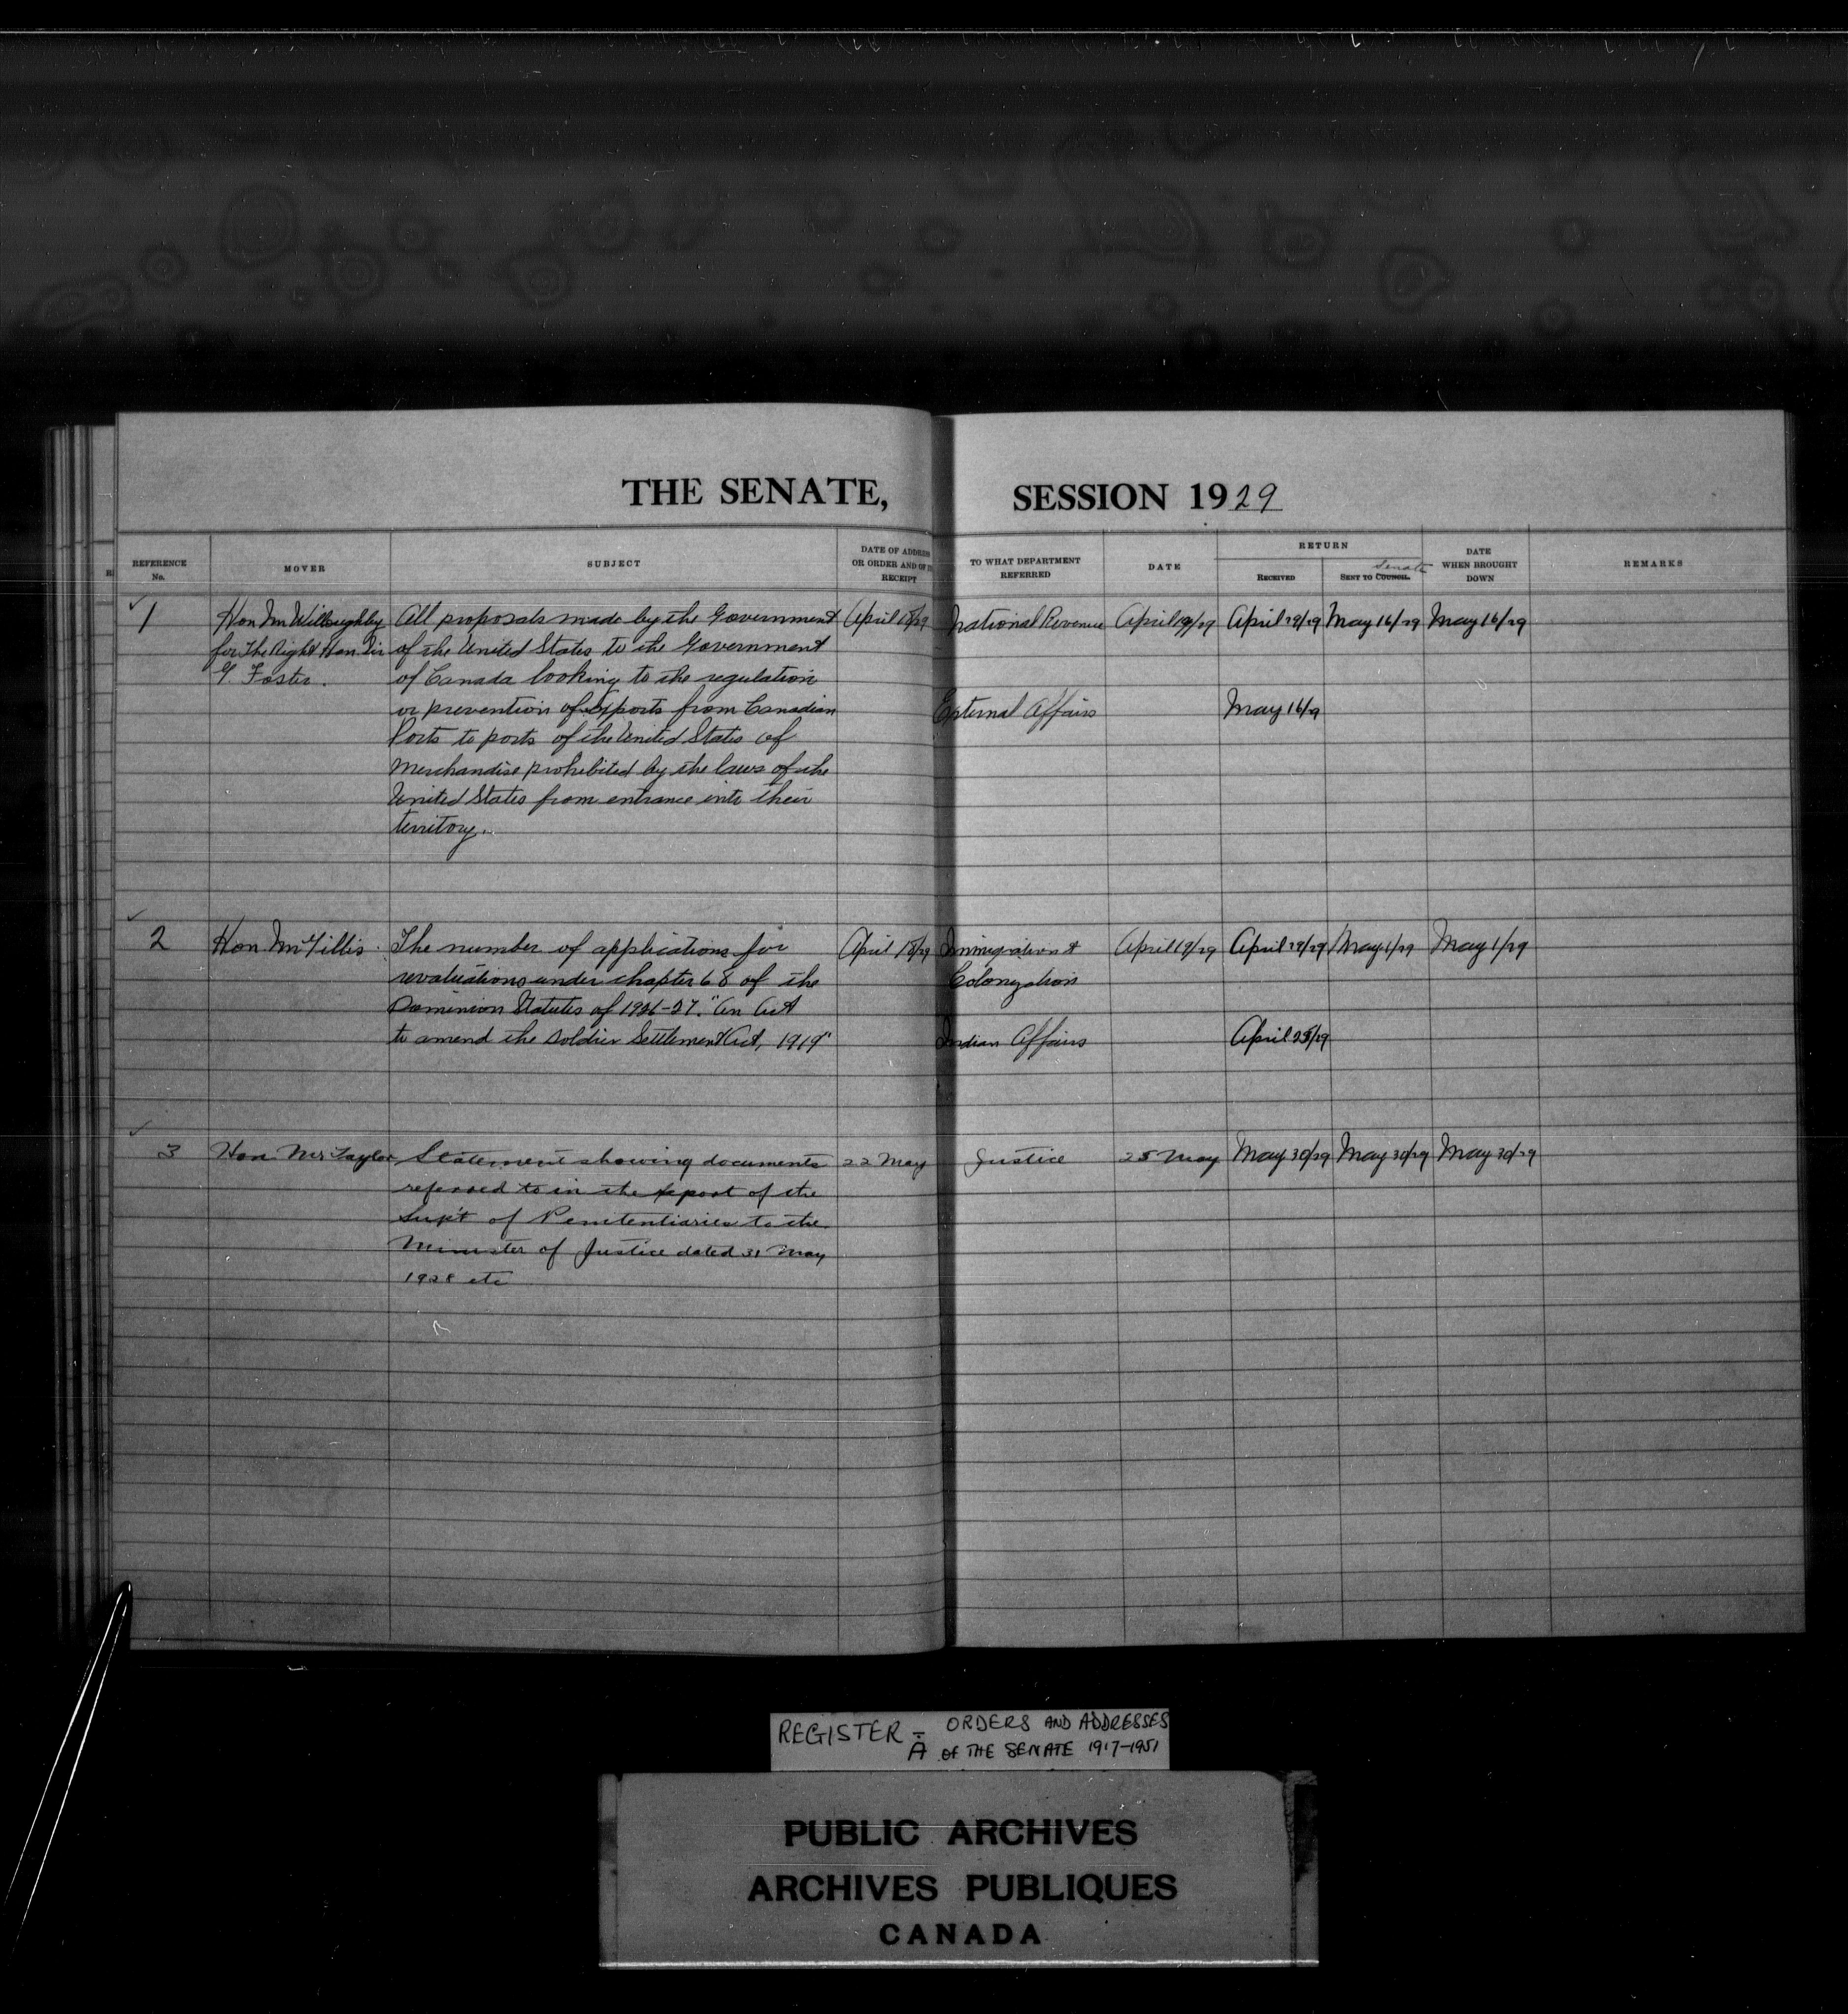 THE SENATE, SESSION 1929
REFERENCE No.
MOVER
SUBJECT
DATE OF ADDRESS OR ORDER AND OF ITS RECEIPT
TO WHAT DEPARTMENT REFERRED
DATE
RETURN
RECEIVED
SENT TO COUNCIL. Senate
DATE WHEN BROUGHT DOWN
REMARKS
1 Hon Mr Willoughby All proposals made by the Government April 18/29 National Revenue April 19/29 April 29/29 May 16/29 May 16/29
for The Right Hon Sir of the United States to the Government
G. Foster. of Canada looking to the regulation
or prevention of exports from Canadian External Affairs May 16/29
Ports to ports of the United States of
Merchandise prohibited by the laws of the
United States from entrance into their
territory.
2 Hon. Mr Gillis. The number of applications for April 18/29 Immigration & April 19/29 April 29/29 May 1/29 May 1/29
revaluations under chapter 68 of the Colonization
Dominion Statutes of 1926-27. "An Act
to amend the Soldier Settlement Act, 1919" Indian Affairs April 25/29
3 Hon Mr Taylor Statement showing documents 22 May Justice 25 May May 30/29 May 30/29 May 30/29
referred to in the report of the
Supt of Penitentiaries to the
Minister of Justice dated 31 May
1928 etc
REGISTER - ORDERS AND ADDRESSES
A OF THE SENATE 1917-1951
PUBLIC ARCHIVES
ARCHIVES PUBLIQUES
CANADA